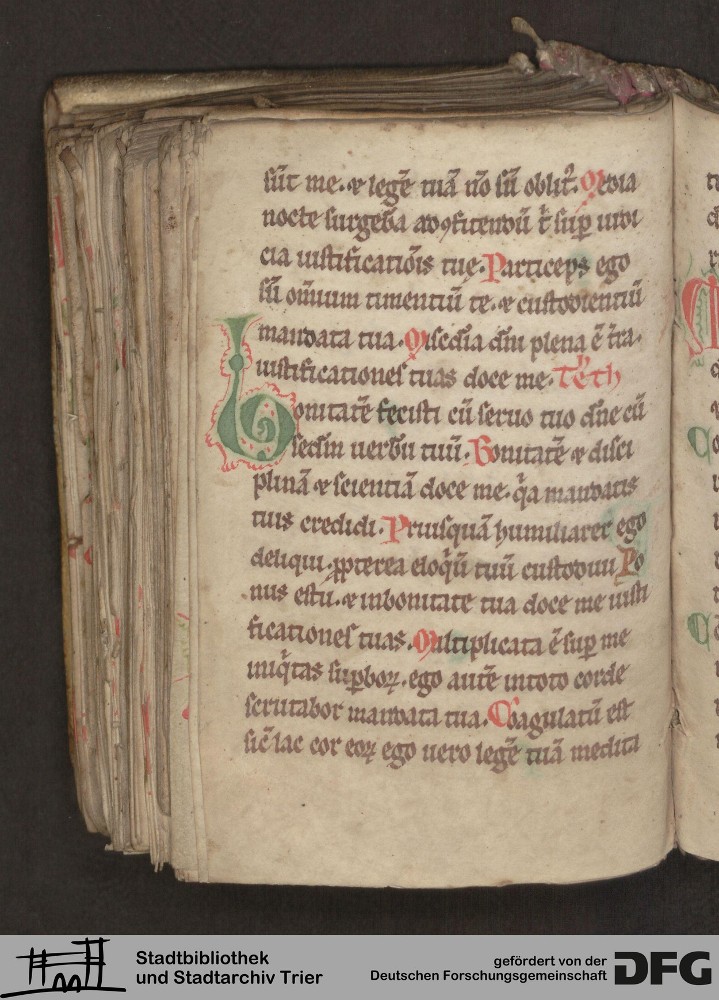 sūt me. ⁊ legē tuā nō sū oblit⁹. Media
nocte surgebā ad ꝯfitendū t̄ sup̄ iudi
cia iustificatiōis tue. Particeps ego
sū om̄ium timentiū te. ⁊ custodientiū
mandata tua. Mis̄cdia dn̄i plena ē t̄ra.
iustificationes tuas doce me. Teth
Bonitatē fecisti cū seruo tuo dn̄e cū
secdm uerbū tuū. Bonitatē ⁊ disci
plinā ⁊ scientiā doce me. q̄a mandatis
tuis credidi. Priusquā humiliarer ego
deliqui. ꝓpterea eloq̄ū tuū custodiui Bo
nus es tu. ⁊ in bonitate tua doce me iusti
ficationes tuas. Multiplicata ē sup̄ me
iniq̄tas sup̄boꝝ. ego autē in toto corde
scrutabor mandata tua. Coagulatū est
sic̄ lac cor eoꝝ ego uero legē tuā medita
Stadtbibliothek
und Stadtarchiv Trier
gefördert von der
Deutschen Forschungsgemeinschaft
DFG